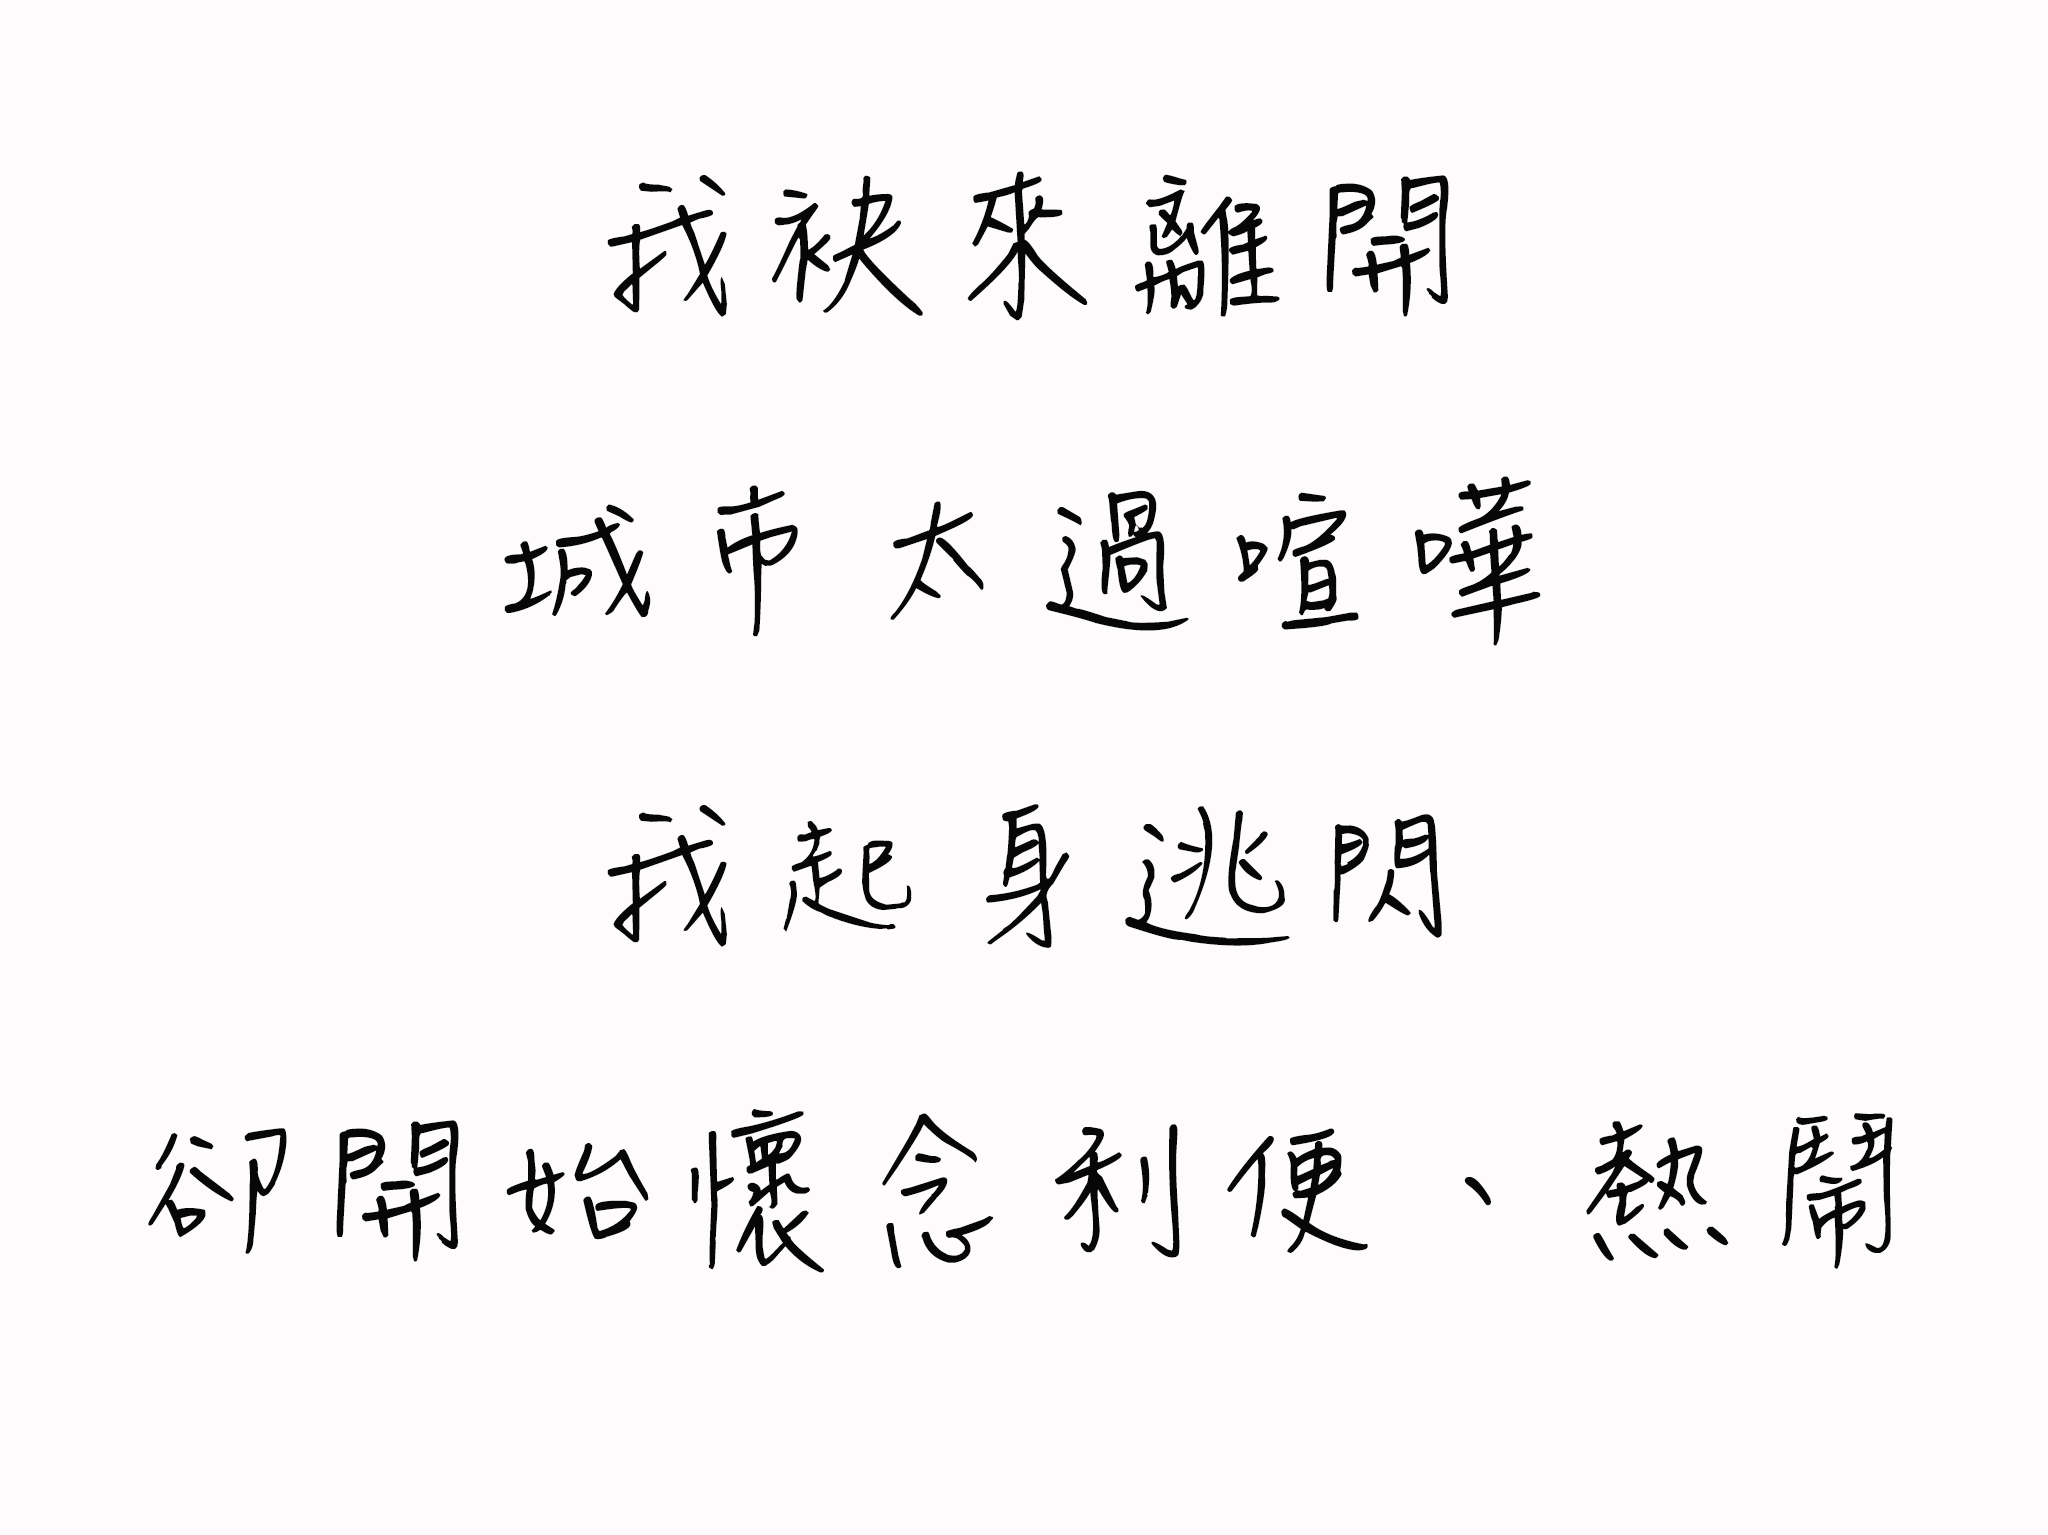 我袂來離開
城市太過喧嘩
我起身逃閃
卻開始懷念利便、熱鬧